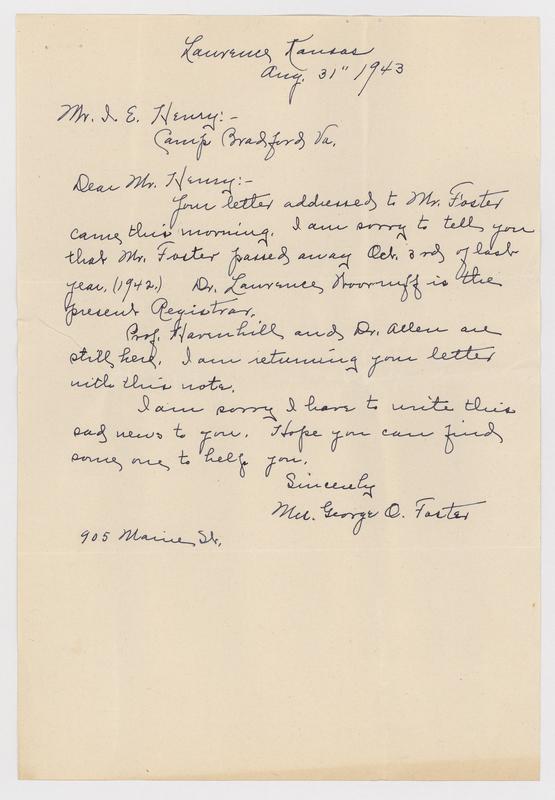 Lawrence Kansas
Aug. 31" 1943
Mr. I. E. Henry:-
Camp Bradford Va.
Dear Mr. Henry:-
Your letter addressed to Mr. Foster
came this morning. I am sorry to tell you
that Mr. Foster passed away Oct. 3rd of last
year. (1942.) Dr. Laurence Woodruff is the
present Registrar.
Prof. Havenhill and Dr. Allen are
still here. I am returning your letter
with this note.
I am sorry I have to write this
sad news to you. Hope you can find
some one to help you.
Sincerely
Mrs. George O. Foster
905 Maine St.